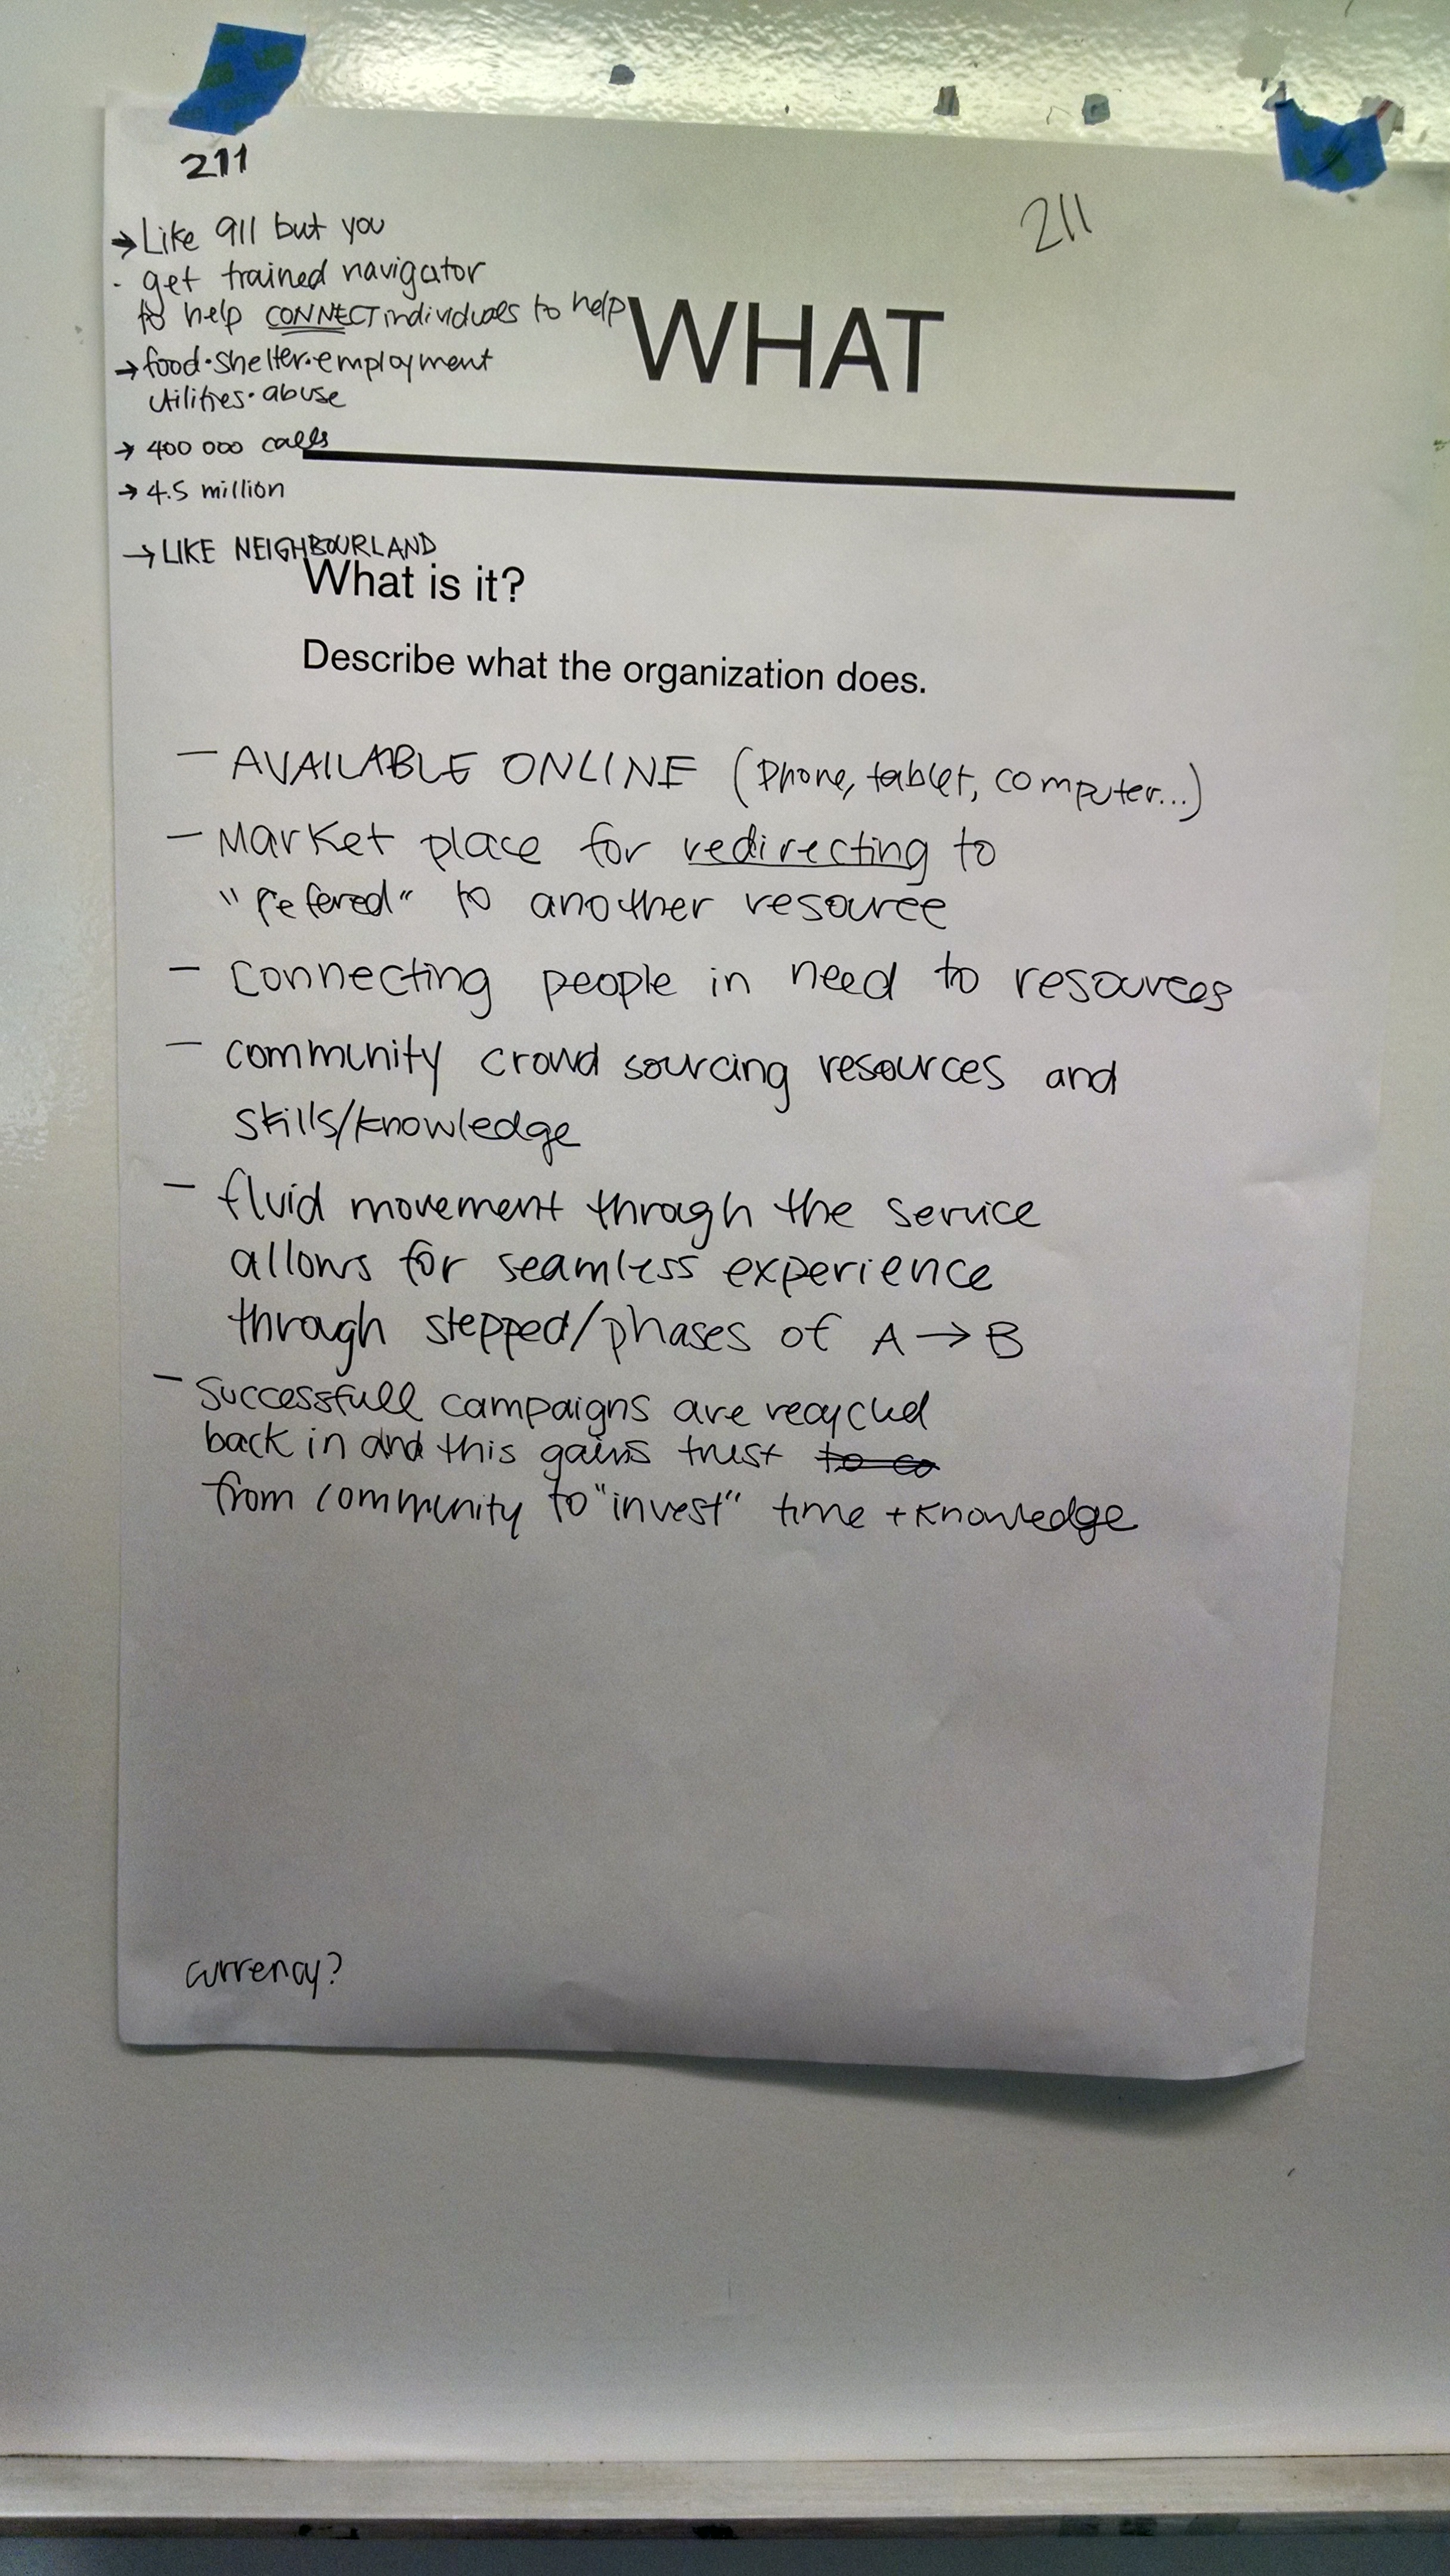 211
→ Like 911 but you
- get trained navigator
to help CONNECT individuals to help
→ food · shelter · employment
utilities · abuse
→ 400 000 calls
→ 4.5 million
→ LIKE NEIGHBOURLAND
211
WHAT
What is it?
Describe what the organization does.
— AVAILABLE ONLINE (phone, tablet, computer...)
— Market place for redirecting to
"refered" to another resource
— connecting people in need to resources
— community crowd sourcing resources and
skills/knowledge
— fluid movement through the service
allows for seamless experience
through stepped/phases of A → B
— successfull campaigns are recycled
back in and this gains trust
from community to "invest" time + knowledge
currency?